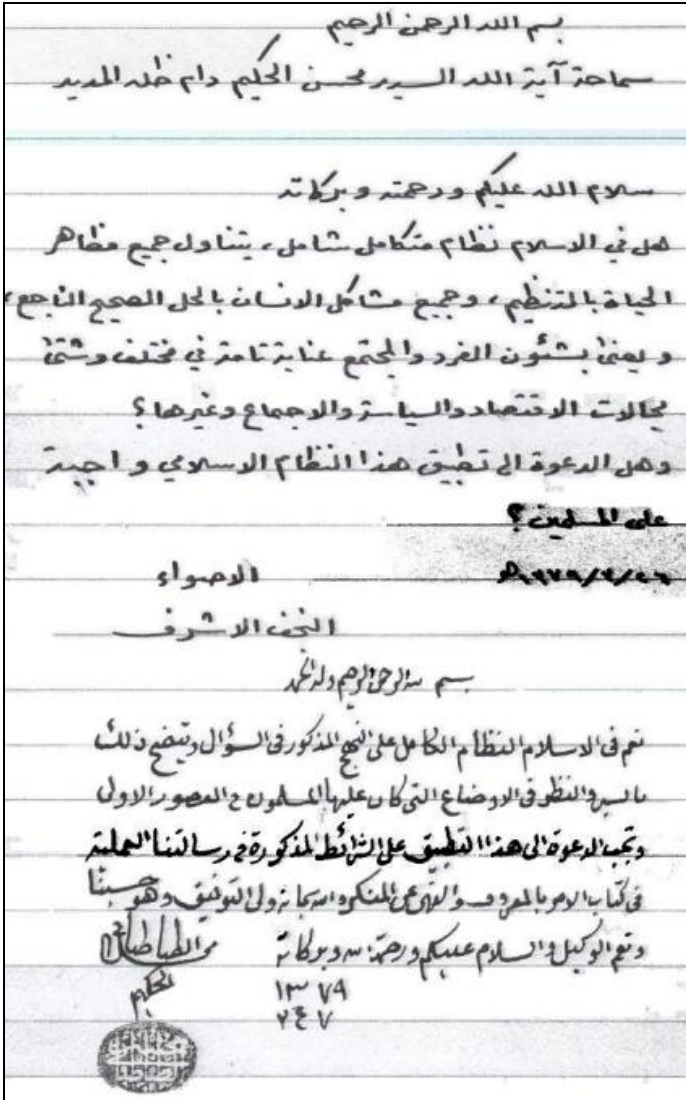 بسم الله الرحمن الرحيم
سماحة آية الله السيد محسن الحكيم دام ظله المديد
سلام الله عليكم ورحمته وبركاته
هل في الاسلام نظام متكامل شامل، يتناول جميع مظاهر
الحياة بالتنظيم، وجميع مشاكل الانسان بالحل الصحيح الناجع،
و يعنى بشئون الفرد والمجتمع عناية تامة في مختلف وشتى
مجالات الاقتصاد والسياسة والاجتماع وغيرها؟
وهل الدعوة الى تطبيق هذا النظام الاسلامي واجبة
على المسلمين؟
الاضواء
النجف الاشرف
بسم الله الرحمن الرحيم وله الحمد
نعم في الاسلام النظام الكامل على النهج المذكور في السؤال ويتضح ذلك
بالسير والنظر في الاوضاع التي كان عليها المسلمون في العصور الاولى
وتجب الدعوة الى هذا التطبيق على الشرائط المذكورة في رسالتنا العملية
في كتاب الامر بالمعروف والنهي عن المنكر والله سبحانه ولي التوفيق وهو حسبنا
ونعم الوكيل والسلام عليكم ورحمة الله وبركاته
محسن الطباطبائي
الحكيم
١٣٧٩